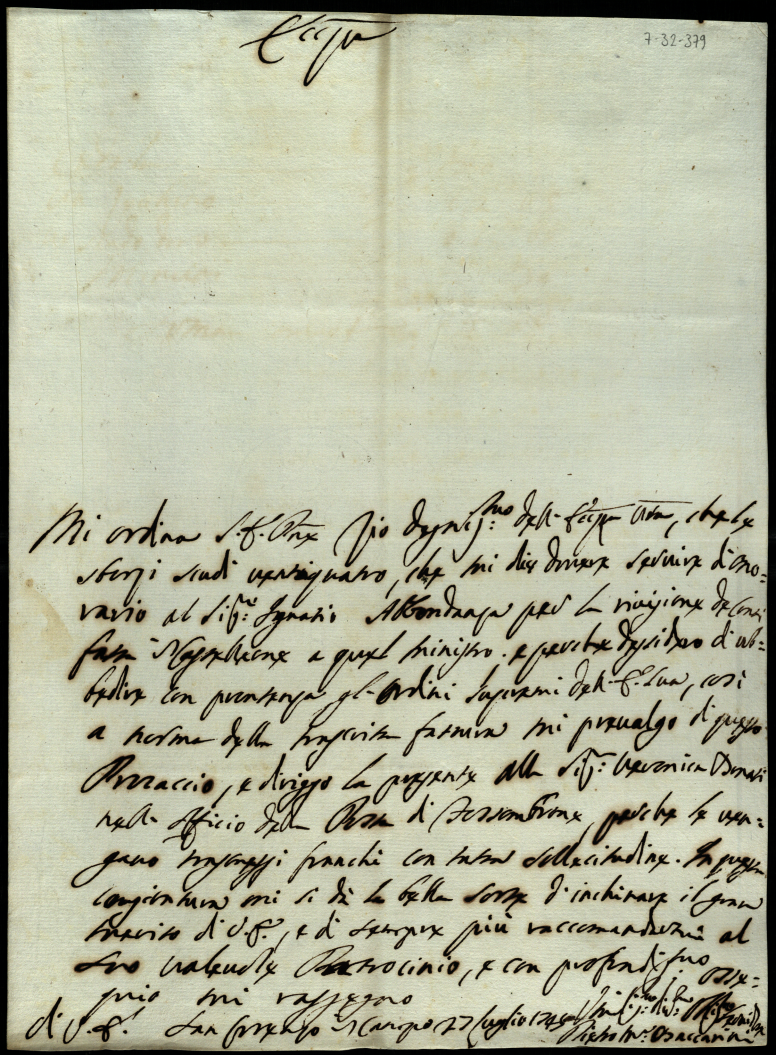 7-32-379
Mi ordina S. E. Pne Zio degnis:mo dell' Eccza Vra, che le
sborsi scudi ventiquatro, che mi dice dovere servire di ono=
rario al Sigr: Ignatio Abondanza per la revisione de conti
fatta a quel Ministro. e perche desidero di ub=
bedire con prontezza gl' ordini supremi dell' E. Sua, così
a norma della trascritta mi prevalgo di questo
Procaccio, e diriggo la presente alla Sigra: Veronica
nell' officio della Posta di Fossombrone, perche le ven=
gano trasmessi franchi con tutta sollecitudine. In questa
congiontura mi si dà la bella sorte d' inchinare il gran
merito di V. E., e di sempre più raccomandarmi al
suo valevole Patrocinio, e con profondissimo osse=
quio mi rassegno
di V. E. San Lorenzo in Campo 27 Luglio